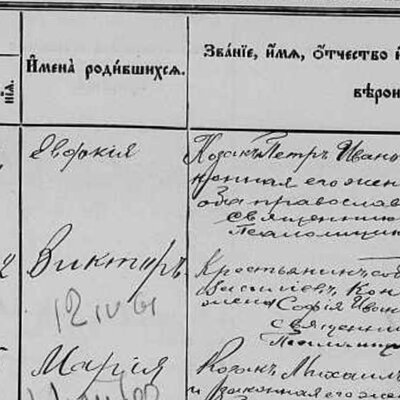 Имена родившихся.
Званіе, имя, отчество и
вѣрои
нія.
Евдокія
Козакъ Петръ Ивано
конная его жен
оба православ
священник
Псаломщик
Викторъ
12 IV 61
Крестьянинъ
Васильевъ, Кон
жена Софія Иван
священни
Псаломщик
Марія
Козакъ Михаилъ
и законная его жен